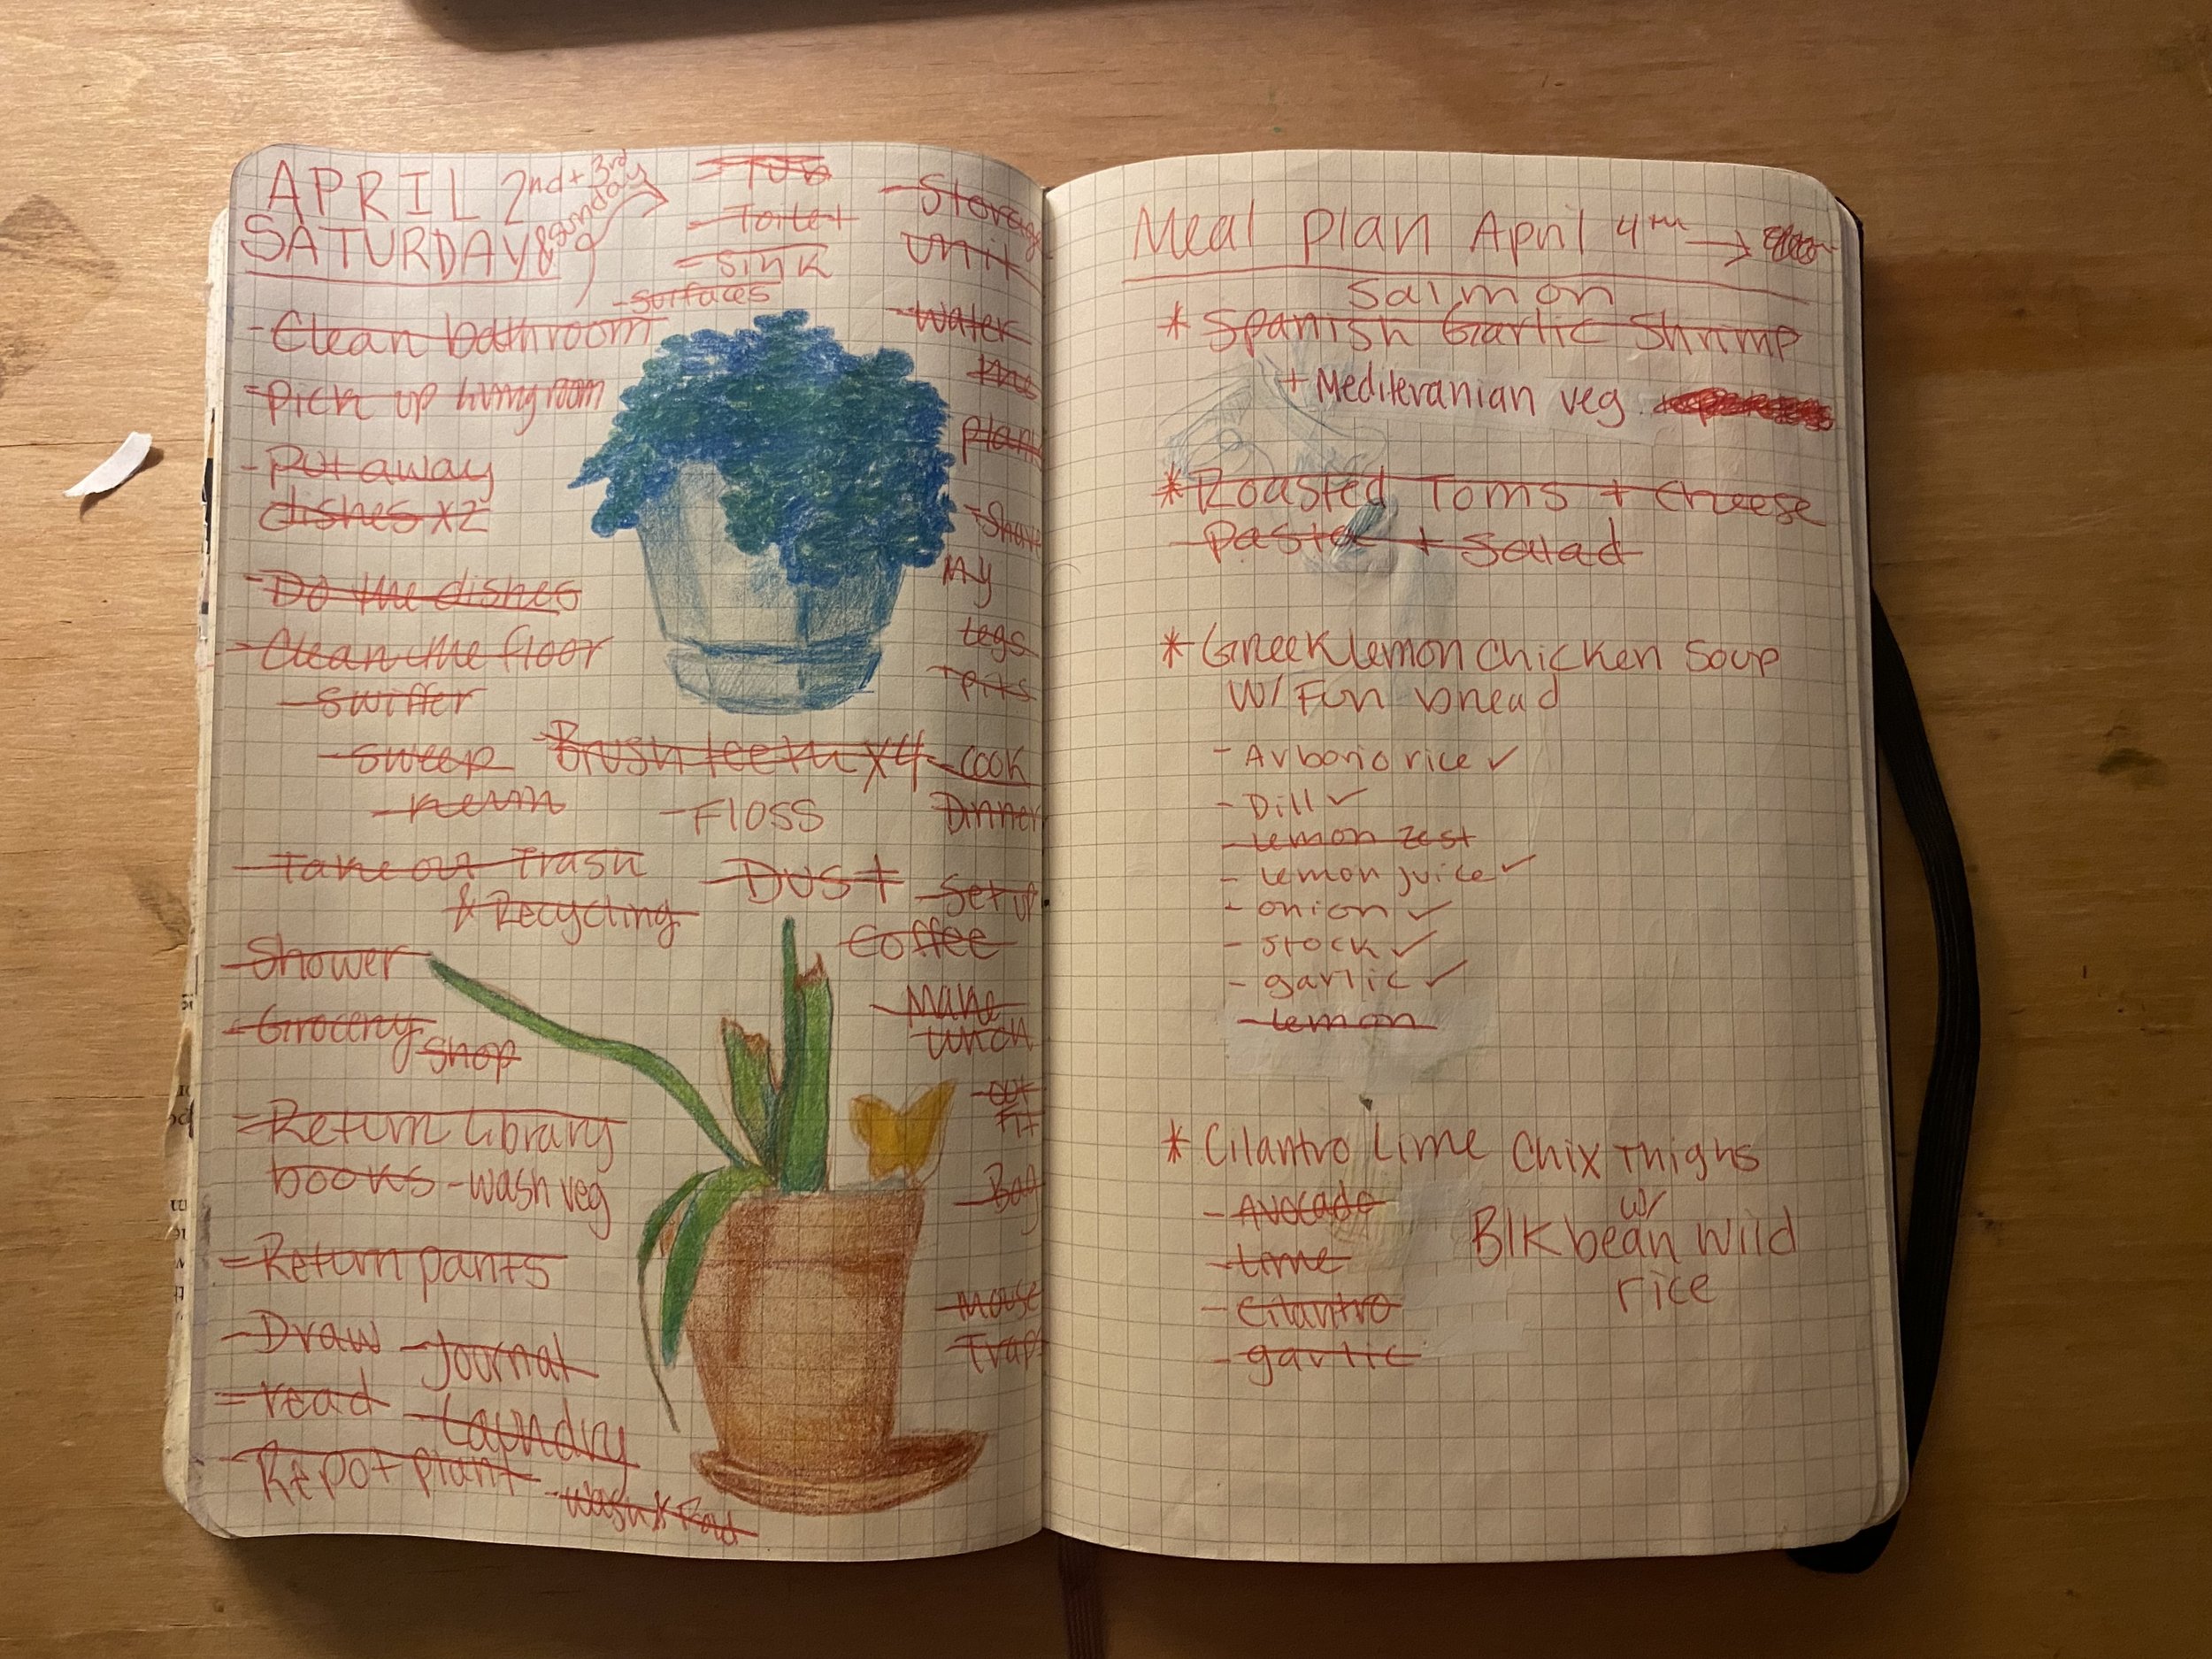 APRIL 2nd + 3rd
SATURDAY & sunday
- Clean bathroom
- TUB
- Toilet
- SINK
- surfaces
- Pick up living room
- Put away
dishes x2
- Do the dishes
- Clean the floor
- swiffer
- sweep
- Take out Trash
& Recycling
- Shower
- Grocery
shop
- Return Library
books - wash veg
- Return pants
- Draw - Journal
- read - Laundry
- Repot plant
- Brush teeth x4
- FLOSS
- Dust
- Storage
Unit
- Water
the
plant
- Shave
My
legs
- pits
- cook
Dinner
- Set up
Coffee
- Make
lunch
- out
fit
- Bag
- Mouse
Traps
Meal Plan April 4th →
Salmon
* Spanish Garlic Shrimp
+ Mediteranian veg.
* Roasted Toms + Cheese
Pasta + Salad
* Greek lemon Chicken Soup
W/ Fun bread
- Arborio rice ✓
- Dill ✓
- Lemon zest
- Lemon juice ✓
- onion ✓
- stock ✓
- garlic ✓
- lemon
* Cilantro Lime Chix Thighs
w/
Blk bean wild
rice
- Avocado
- Lime
- Cilantro
- garlic